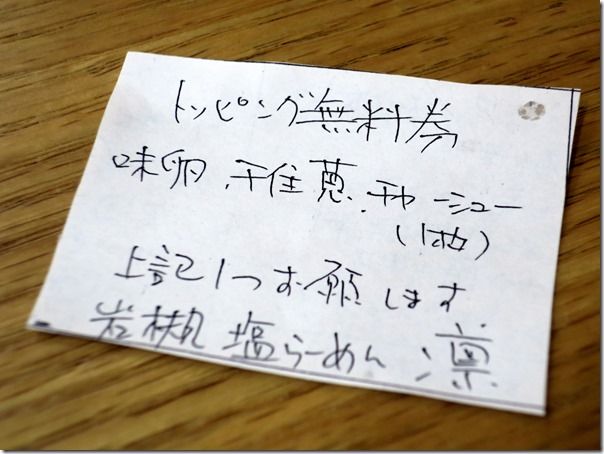 トッピング無料券
味卵.千住葱.チャーシュー
(1枚)
上記1つお願します
岩槻 塩らーめん 凛